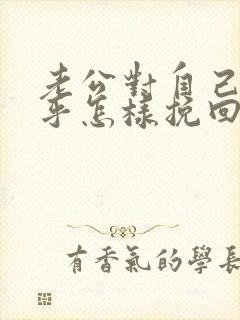 老公對自己
乎怎樣挽回
有香氣的學長